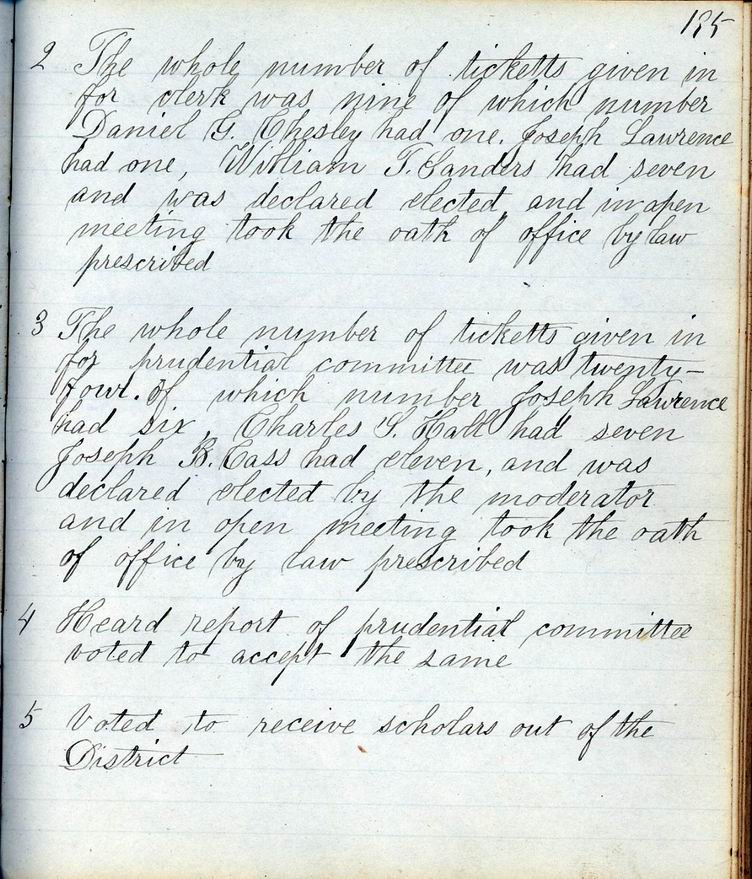 195
2 The whole number of ticketts given in
for clerk was nine of which number
Daniel G. Chesley had one. Joseph Lawrence
had one, William T. Sanders had seven
and was declared elected and in open
meeting took the oath of office by law
prescribed
3 The whole number of ticketts given in
for prudential committee was twenty-
four. of which number Joseph Lawrence
had six, Charles S. Hall had seven
Joseph B. Cass had eleven, and was
declared elected by the moderator
and in open meeting took the oath
of office by law prescribed
4 Heard report of prudential committee
voted to accept the same
5 Voted to receive scholars out of the
District